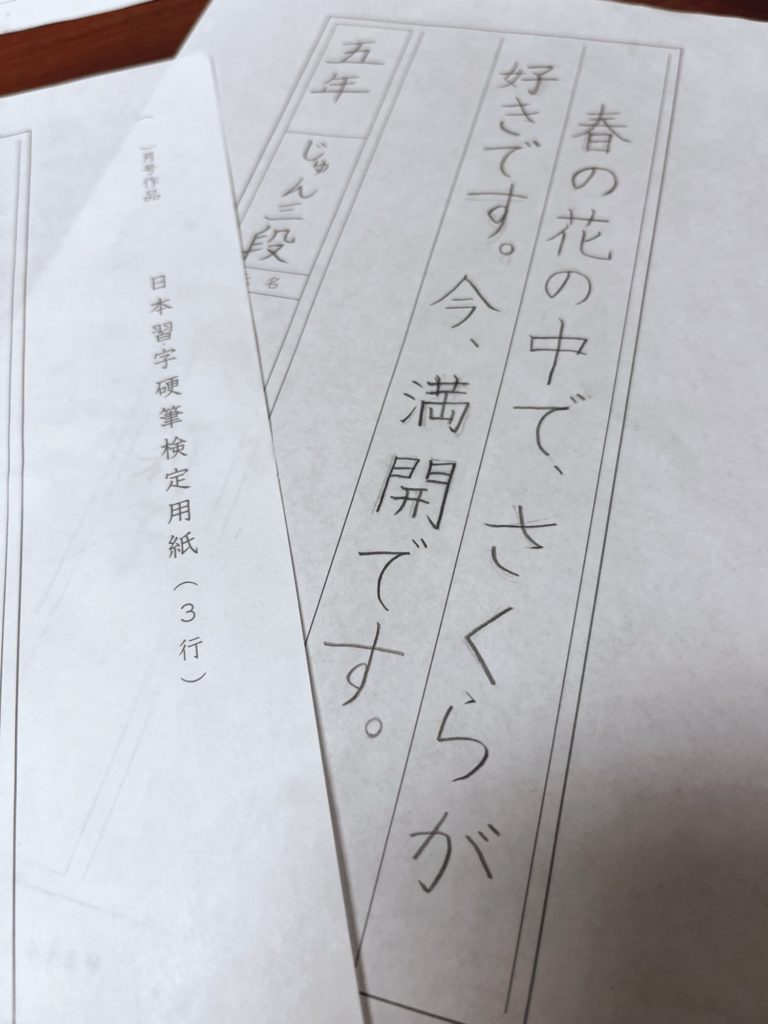 春の花の中で、さくらが
好きです。今、満開です。
五年
じゅん三段
名
( )月号作品
日本習字硬筆検定用紙(3行)